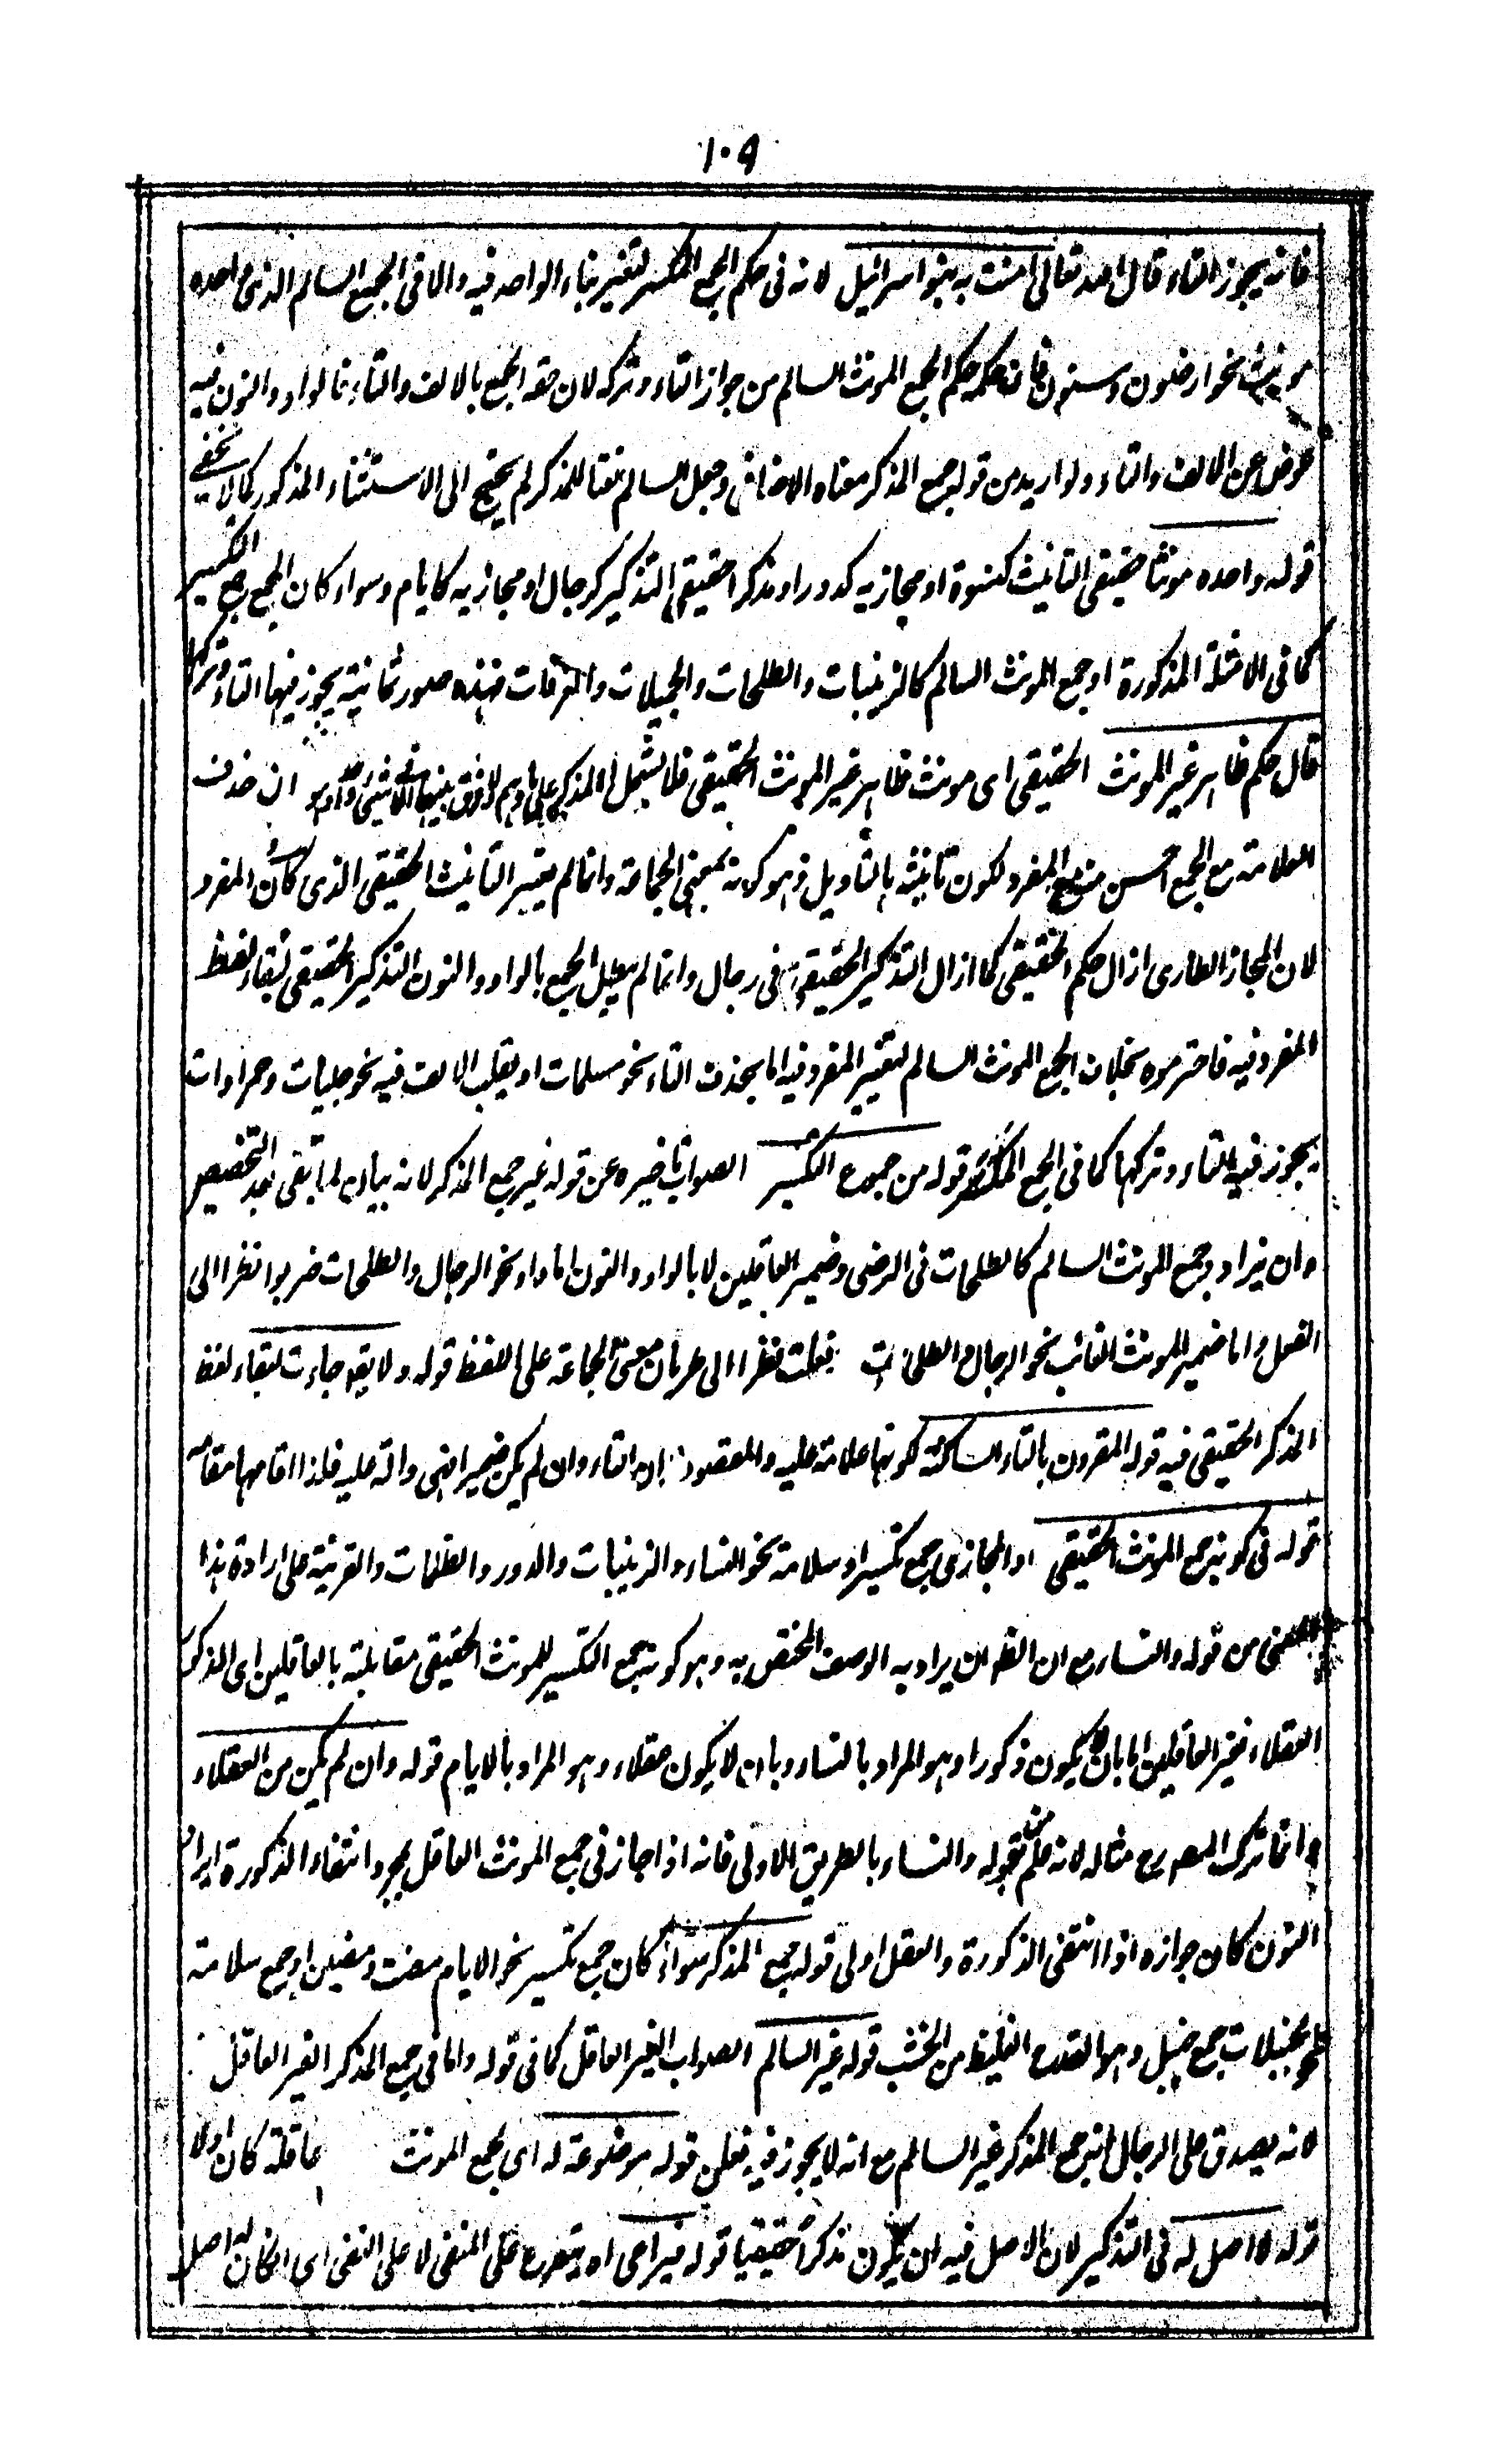 ١٠٩
فانه يجوز التاء قال الله تعالى امنت به بنو اسرائيل لانه فى حكم الجمع المكسر لتغير بناء الواحد فيه والا فى الجمع السالم الذى واحده
مونث نحو ارضون وسنون فان حكمه حكم الجمع المونث السالم من جواز التاء وتركه لان حقه الجمع بالالف والتاء فالواو والنون فيه
عوض عن الالف والتاء ولو اريد من قوله جمع المذكر معناه الاضافى وجعل السالم نعتا للمذكر لم يحتج الى الاستثناء المذكور كما لا يخفى
قوله واحده مونثا حقيقى التانيث كنسوة او مجازيه كدور او مذكرا حقيقى التذكير كرجال او مجازيه كايام وسواء كان الجمع جمع التكسير
كما فى الامثلة المذكورة او جمع المونث السالم كالزينبات والطلحات والجبيلات والغرفات فهذه صور ثمانية يجوز فيها التاء وتركها
قال حكم ظاهر غير المونث الحقيقى اى مونث ظاهر غير المونث الحقيقى فلا يشمل المذكر على ما وهم لا فرق بينهما فى شئ ان حذف
العلامة مع الجمع احسن منه مع المفرد لكون تانيثه بالتاويل وهو كونه بمعنى الجماعة وانما لم يعتبر التانيث الحقيقى الذى كان فى المفرد
لان المجاز الطارى ازال حكم الحقيقى كما ازال التذكير الحقيقى فى رجال وانما لم يبطل الجمع بالواو والنون التذكير الحقيقى لبقاء لفظ
المفرد فيه فاحترموه بخلاف الجمع المونث السالم لتغيير المفرد فيه اما بحذف التاء نحو مسلمات او بقلب الالف فيه نحو حبليات وحمراوات
يجوز فيه التاء وتركها كما فى الجمع المكسر قوله من جموع التكسير الصواب تاخيره عن قوله غير جمع المذكر لانه بيان لما بقى بعد التخصيص
وان يزاد وجمع المونث السالم كالطلحات فى الرضى وضمير العاقلين لا بالواو والنون اما واو نحو الرجال والطلحات ضربوا نظرا الى
العقل واما ضمير المونث الغائب نحو الرجال والطلحات فعلت نظرا الى طريان معنى الجماعة على اللفظ قوله ولا يقو جاءت لبقاء لفظ
المذكر الحقيقى فيه قوله المقرون بالتاء الساكنة لكونها علامة عليه والمقصود ان التاء وان لم يكن ضميرا فهى دالة عليه فلذا اقامها مقامه
قوله فى كونه جمع المونث الحقيقى او المجازى جمع تكسير او سلامة نحو النساء والزينبات والدور والظلمات والقرينة على ارادة هذا
المعنى من قوله والنساء مع ان الظ ان يراد به الوصف المختص به وهو كونه جمع التكسير للمونث الحقيقى مقابلته بالعاقلين اى الذكور
العقلاء فغير العاقلين اما بان لا يكون ذكورا وهو المراد بالنساء وبان لا يكون عقلاء وهو المراد بالايام قوله وان لم يكن من العقلاء
وانما ترك المصرع مثاله لانه علم من قوله والنساء بالطريق الاولى فانه اذا جاز فى جمع المونث العاقل بمجرد انتفاء الذكورة ايراد
النون كان جوازه اذا انتفى الذكورة والعقل اولى قوله جمع المذكر سواء كان جمع تكسير نحو الايام مضت ومضين او جمع سلامة
نحو جبيلات جمع جبيل وهو القدح الغليظ من الخشب قوله غير السالم الصواب الغير العاقل كما فى قوله واما فى جمع المذكر الغير العاقل
لانه يصدق على الرجال انه جمع المذكر غير السالم مع انه لا يجوز فيه فعلن قوله موضوعة له اى لجمع المونث عاقلة كان او لا
قوله لا اصل له فى التذكير لان الاصل فيه ان يكون مذكرا حقيقيا قوله فيراعى اه متفرع على المنفى لا على النفى اى لكان له اصل